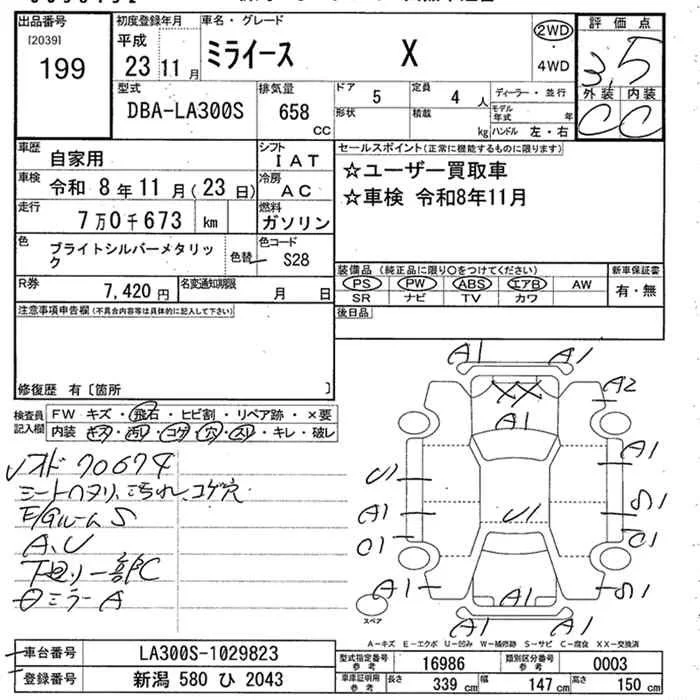 出品番号 初度登録年月 車名・グレード 評価点
[2039] 平成 ミライース X 2WD 3,5
199 23 11月 ・4WD 外装 内装
C C
型式 排気量 ドア 5 定員 4人 ディーラー・並行
DBA-LA300S 658 CC 形状 積載 kg モデル年式 年
ハンドル 左・右
車歴 自家用 シフト IAT セールスポイント(正常に機能するものに限ります)
車検 令和 8年11月(23日) 冷房 AC ☆ユーザー買取車
走行 7万0千673 km 燃料 ガソリン ☆車検 令和8年11月
色 ブライトシルバーメタリック 色替 色コード S28
装備品 (純正品に限り○をつけてください) 新車保証書
R券 7,420円 名変通知期限 月 日 PS PW ABS エアB AW 有・無
SR ナビ TV カワ
注意事項申告欄(不具合内容等は具体的に記入して下さい) 後日品
修復歴 有〔箇所 〕
検査員記入欄 FW キズ・飛石・ヒビ割・リペア跡・×要
内装 キズ・汚れ・コゲ・穴・スリ・キレ・破レ
70674
シートヘタリ、汚れ、コゲ穴
E/GルームS
A、U
下廻り一部C
ミラーA
A1 A1
XX A2
A1
A1
U1
A1 U1 S1
C1 C1
A1 A1 S1
スペア A1
A-キズ E-エクボ U-凹み W-補修跡 S-サビ C-腐食 XX-交換済
車台番号 LA300S-1029823 型式指定番号 参考 16986 類別区分番号 参考 0003
登録番号 新潟 580 ひ 2043 車庫証明用 参考 長さ 339cm 幅 147cm 高さ 150cm